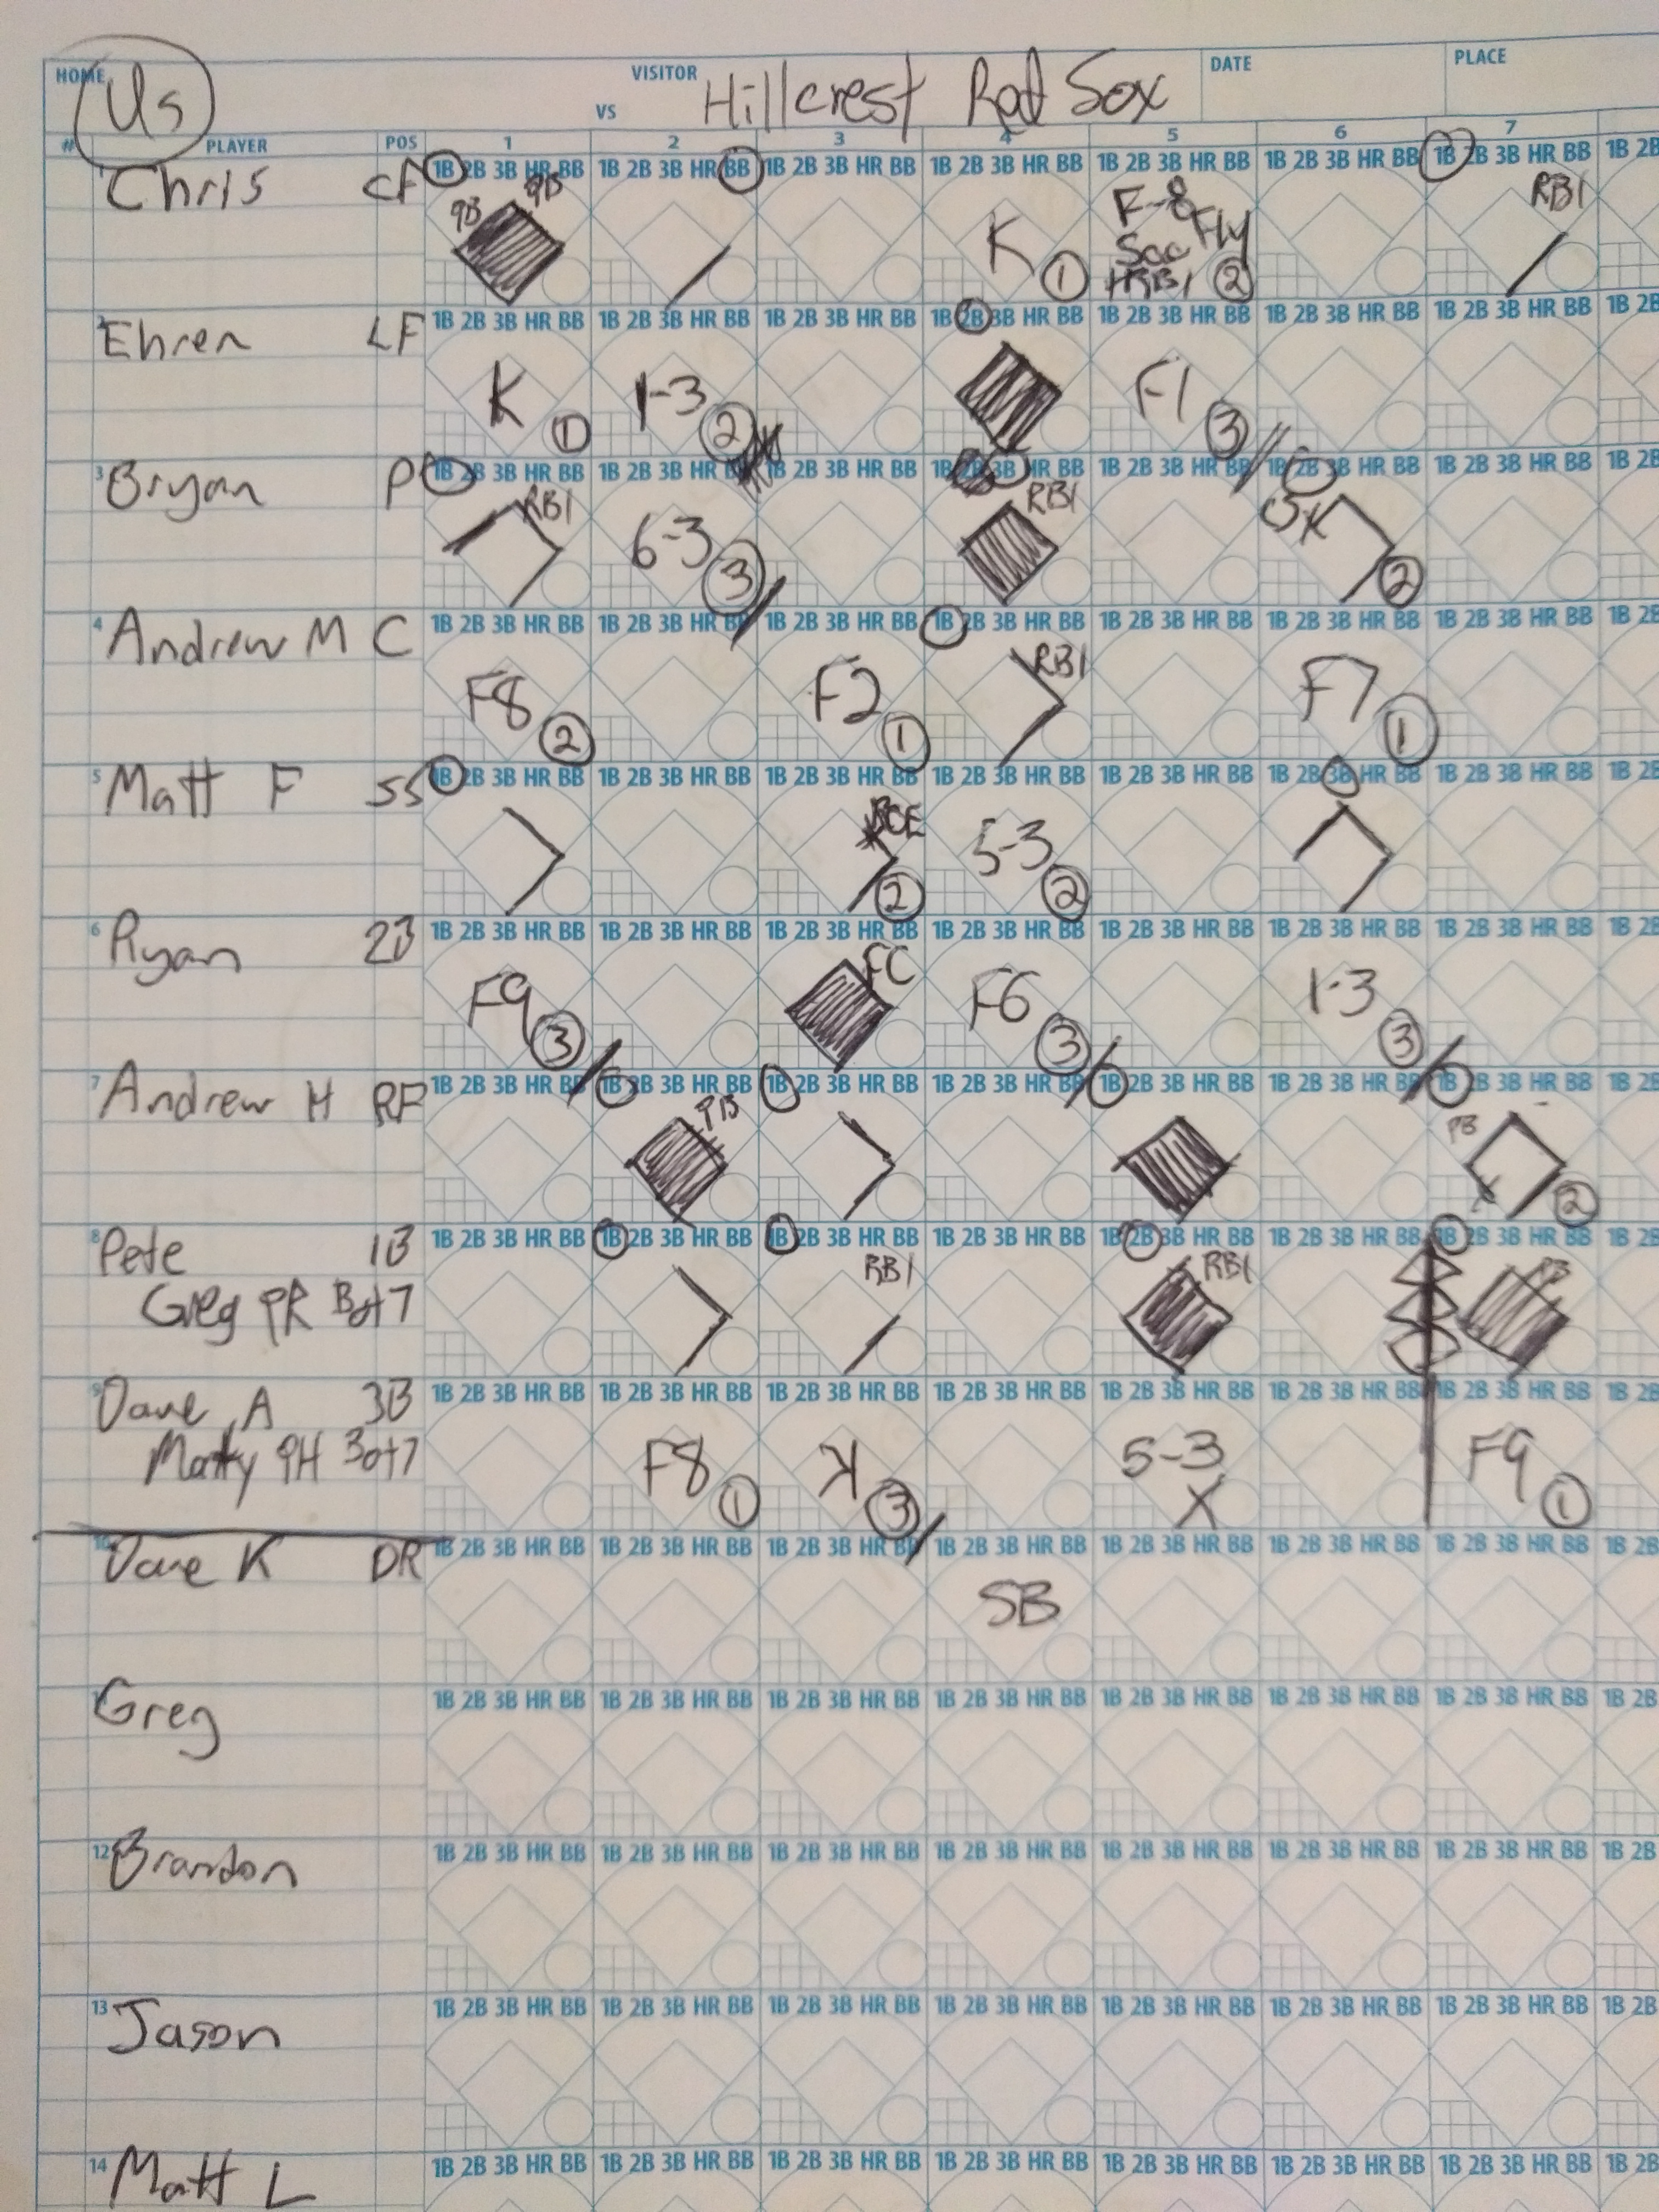 HOME Us VS VISITOR Hillcrest Red Sox DATE PLACE
# PLAYER POS 1 2 3 4 5 6 7
1B 2B 3B HR BB 1B 2B 3B HR BB 1B 2B 3B HR BB 1B 2B 3B HR BB 1B 2B 3B HR BB 1B 2B 3B HR BB 1B 2B 3B HR BB 1B 2B
Chris CF PB PB K 1 F-8 Sac Fly RBI 2 RBI
1B 2B 3B HR BB 1B 2B 3B HR BB 1B 2B 3B HR BB 1B 2B 3B HR BB 1B 2B 3B HR BB 1B 2B 3B HR BB 1B 2B 3B HR BB 1B 2B
2 Ehren LF K 1 1-3 2 F1 3
1B 2B 3B HR BB 1B 2B 3B HR 1B 2B 3B HR BB 1B 3B HR BB 1B 2B 3B HR BB 1B 2B 3B HR BB 1B 2B 3B HR BB 1B 2B
3 Bryan P RBI 6-3 3 RBI 2
1B 2B 3B HR BB 1B 2B 3B HR BB 1B 2B 3B HR BB 1B 2B 3B HR BB 1B 2B 3B HR BB 1B 2B 3B HR BB 1B 2B 3B HR BB 1B 2B
4 Andrew M C F8 2 F2 1 RBI F7 1
1B 2B 3B HR BB 1B 2B 3B HR BB 1B 2B 3B HR BB 1B 2B 3B HR BB 1B 2B 3B HR BB 1B 2B 3B HR BB 1B 2B 3B HR BB 1B 2B
5 Matt F SS 2 5-3 2
1B 2B 3B HR BB 1B 2B 3B HR BB 1B 2B 3B HR BB 1B 2B 3B HR BB 1B 2B 3B HR BB 1B 2B 3B HR BB 1B 2B 3B HR BB 1B 2B
6 Ryan 2B F9 3 FC F6 3 1-3 3
1B 2B 3B HR BB 1B 2B 3B HR BB 1B 2B 3B HR BB 1B 2B 3B HR BB 1B 2B 3B HR BB 1B 2B 3B HR BB 1B 2B 3B HR BB 1B 2B
7 Andrew H RF PB PB 2
1B 2B 3B HR BB 1B 2B 3B HR BB 1B 2B 3B HR BB 1B 2B 3B HR BB 1B 2B 3B HR BB 1B 2B 3B HR BB 1B 2B 3B HR BB 1B 2B
8 Pete 1B RBI RBI
Greg PR Bot 7
1B 2B 3B HR BB 1B 2B 3B HR BB 1B 2B 3B HR BB 1B 2B 3B HR BB 1B 2B 3B HR BB 1B 2B 3B HR BB 1B 2B 3B HR BB 1B 2B
9 Dave A 3B F8 1 K 3 5-3 X F9 1
Matty PH Bot 7
1B 2B 3B HR BB 1B 2B 3B HR BB 1B 2B 3B HR BB 1B 2B 3B HR BB 1B 2B 3B HR BB 1B 2B 3B HR BB 1B 2B 3B HR BB 1B 2B
10 Dave K DR SB
1B 2B 3B HR BB 1B 2B 3B HR BB 1B 2B 3B HR BB 1B 2B 3B HR BB 1B 2B 3B HR BB 1B 2B 3B HR BB 1B 2B 3B HR BB 1B 2B
Greg
1B 2B 3B HR BB 1B 2B 3B HR BB 1B 2B 3B HR BB 1B 2B 3B HR BB 1B 2B 3B HR BB 1B 2B 3B HR BB 1B 2B 3B HR BB 1B 2B
12 Brandon
1B 2B 3B HR BB 1B 2B 3B HR BB 1B 2B 3B HR BB 1B 2B 3B HR BB 1B 2B 3B HR BB 1B 2B 3B HR BB 1B 2B 3B HR BB 1B 2B
13 Jason
1B 2B 3B HR BB 1B 2B 3B HR BB 1B 2B 3B HR BB 1B 2B 3B HR BB 1B 2B 3B HR BB 1B 2B 3B HR BB 1B 2B 3B HR BB 1B 2B
14 Matt L